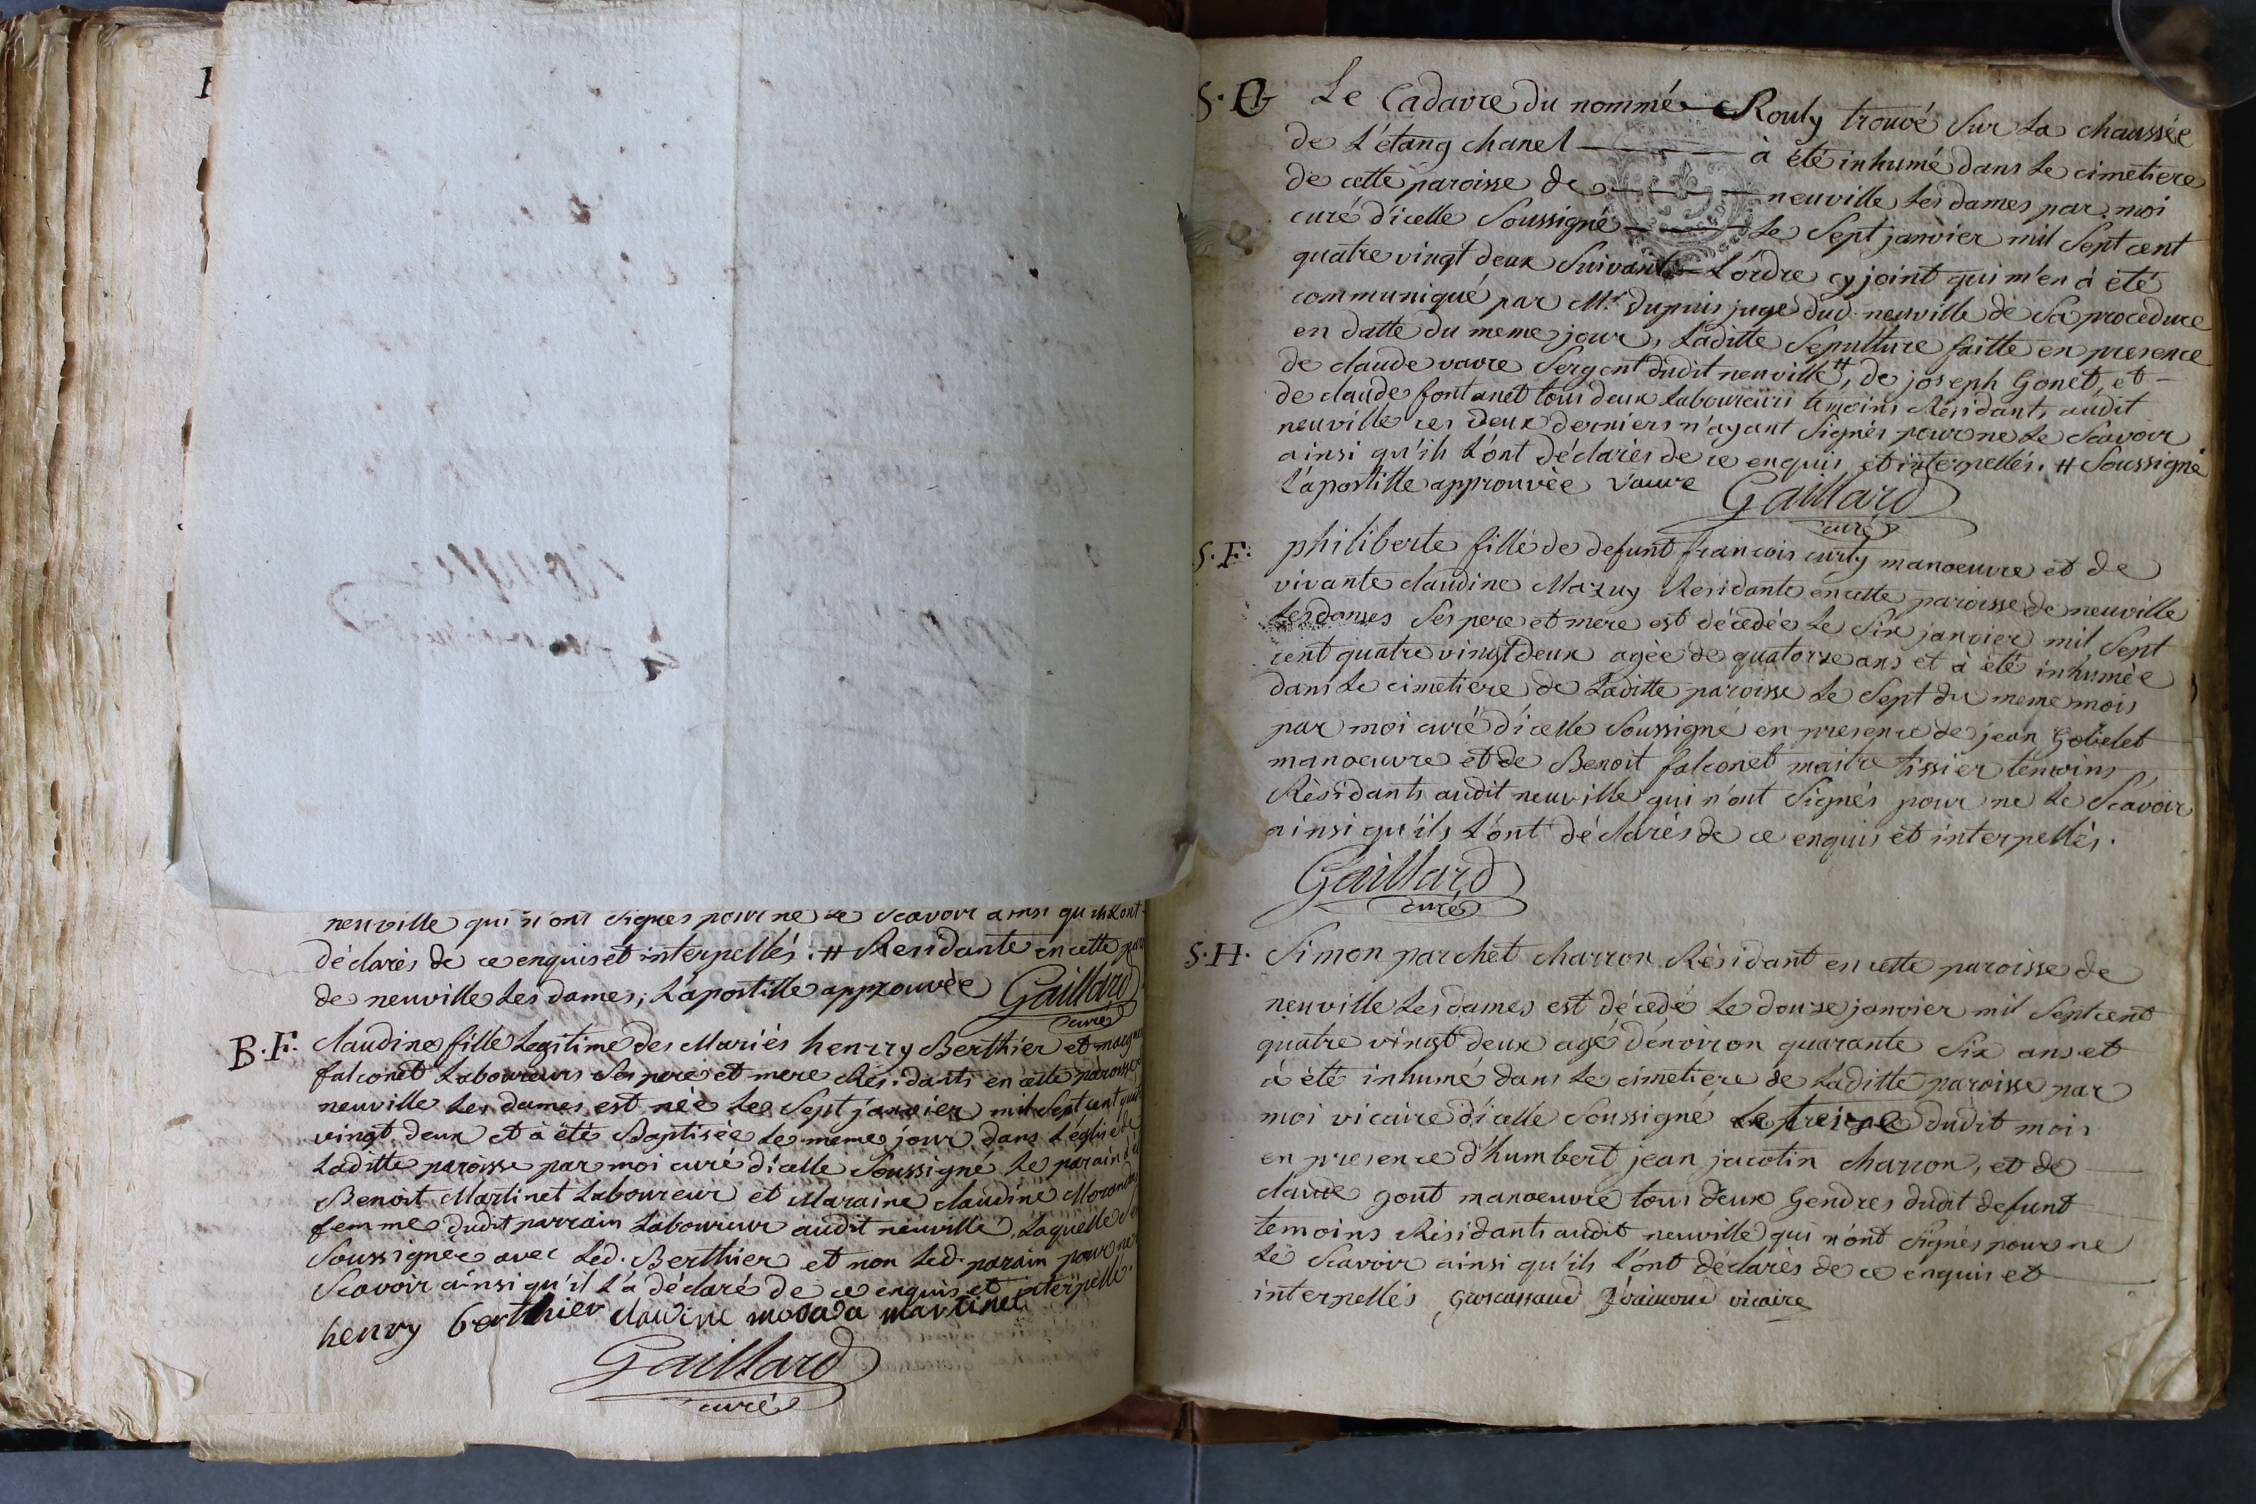 neuville qui n'ont signés pour ne le scavoir ainsi qu'ils l'ont
déclarés de ce enquis et interpellés. # Residante en cette par
de neuville les dames; l'apostille approuvée Gaillard
curé
B.F. claudine fille legitime des Mariés henrry Berthier et
falconet Laboureurs ses pere et mere Résidants en cette paroisse
neuville les dames est née le sept janvier mil sept cent quat
vingt deux et à été Baptisée le meme jour dans l'église de
laditte paroisse par moi curé d'icelle soussigné le parain à été
Benoit Martinet Laboureur et Maraine claudine Morand
femme dudit parrain laboureur audit neuville, laquelle s'est
soussignée avec led. Berthier et non led. parain pour ne
scavoir ainsi qu'il l'a déclaré de ce enquis et interpellé.
henry berthier claudine martinet
Gaillard
curé
S. Le Cadavre du nommé Rouly trouvé sur la chaussée
de l'étang chanel à été inhumé dans le cimetiere
de cette paroisse de neuville les dames par moi
curé d'icelle soussigné le sept janvier mil sept cent
quatre vingt deux suivant l'ordre cy joint qui m'en à été
communiqué par Mr. dupuis juge dud. neuville de sa procedure
en datte du meme jour, laditte sepulture faitte en presence
de claude vavre sergent dudit neuville #, de joseph Gonet, et
de claude fontanet tous deux laboureurs temoins Résidants audit
neuville ces deux derniers n'ayant signés pour ne le scavoir
ainsi qu'ils l'ont déclarés de ce enquis et interpellés. # soussigné
l'apostille approuvée vavre Gaillard
curé
S.F. philiberte fille de defunt francois curty manoeuvre et de
vivante claudine Mazuy Residante en cette paroisse de neuville
les dames ses pere et mere est décédée le six janvier mil sept
cent quatre vingt deux agée de quatorze ans et à été inhumée
dans le cimetiere de laditte paroisse le sept du meme mois
par moi curé d'icelle soussigné en presence de jean Gobelet
manoeuvre et de Benoit falconet maitre tissier temoins
Résidants audit neuville qui n'ont signés pour ne le scavoir
ainsi qu'ils l'ont déclarés de ce enquis et interpellés.
Gaillard
curé
S.H. Simon parchet charron Résidant en cette paroisse de
neuville les dames est décedé le douze janvier mil sept cent
quatre vingt deux agé d'environ quarante six ans et
à été inhumé dans le cimetiere de laditte paroisse par
moi vicaire d'icelle soussigné le treize dudit mois
en presence d'humbert jean jacotin charron, et de
claude gout manoeuvre tous deux Gendres dudit defunt
temoins Résidants audit neuville qui n'ont signés pour ne
le scavoir ainsi qu'ils l'ont déclarés de ce enquis et
interpellés groscassaud vicaire